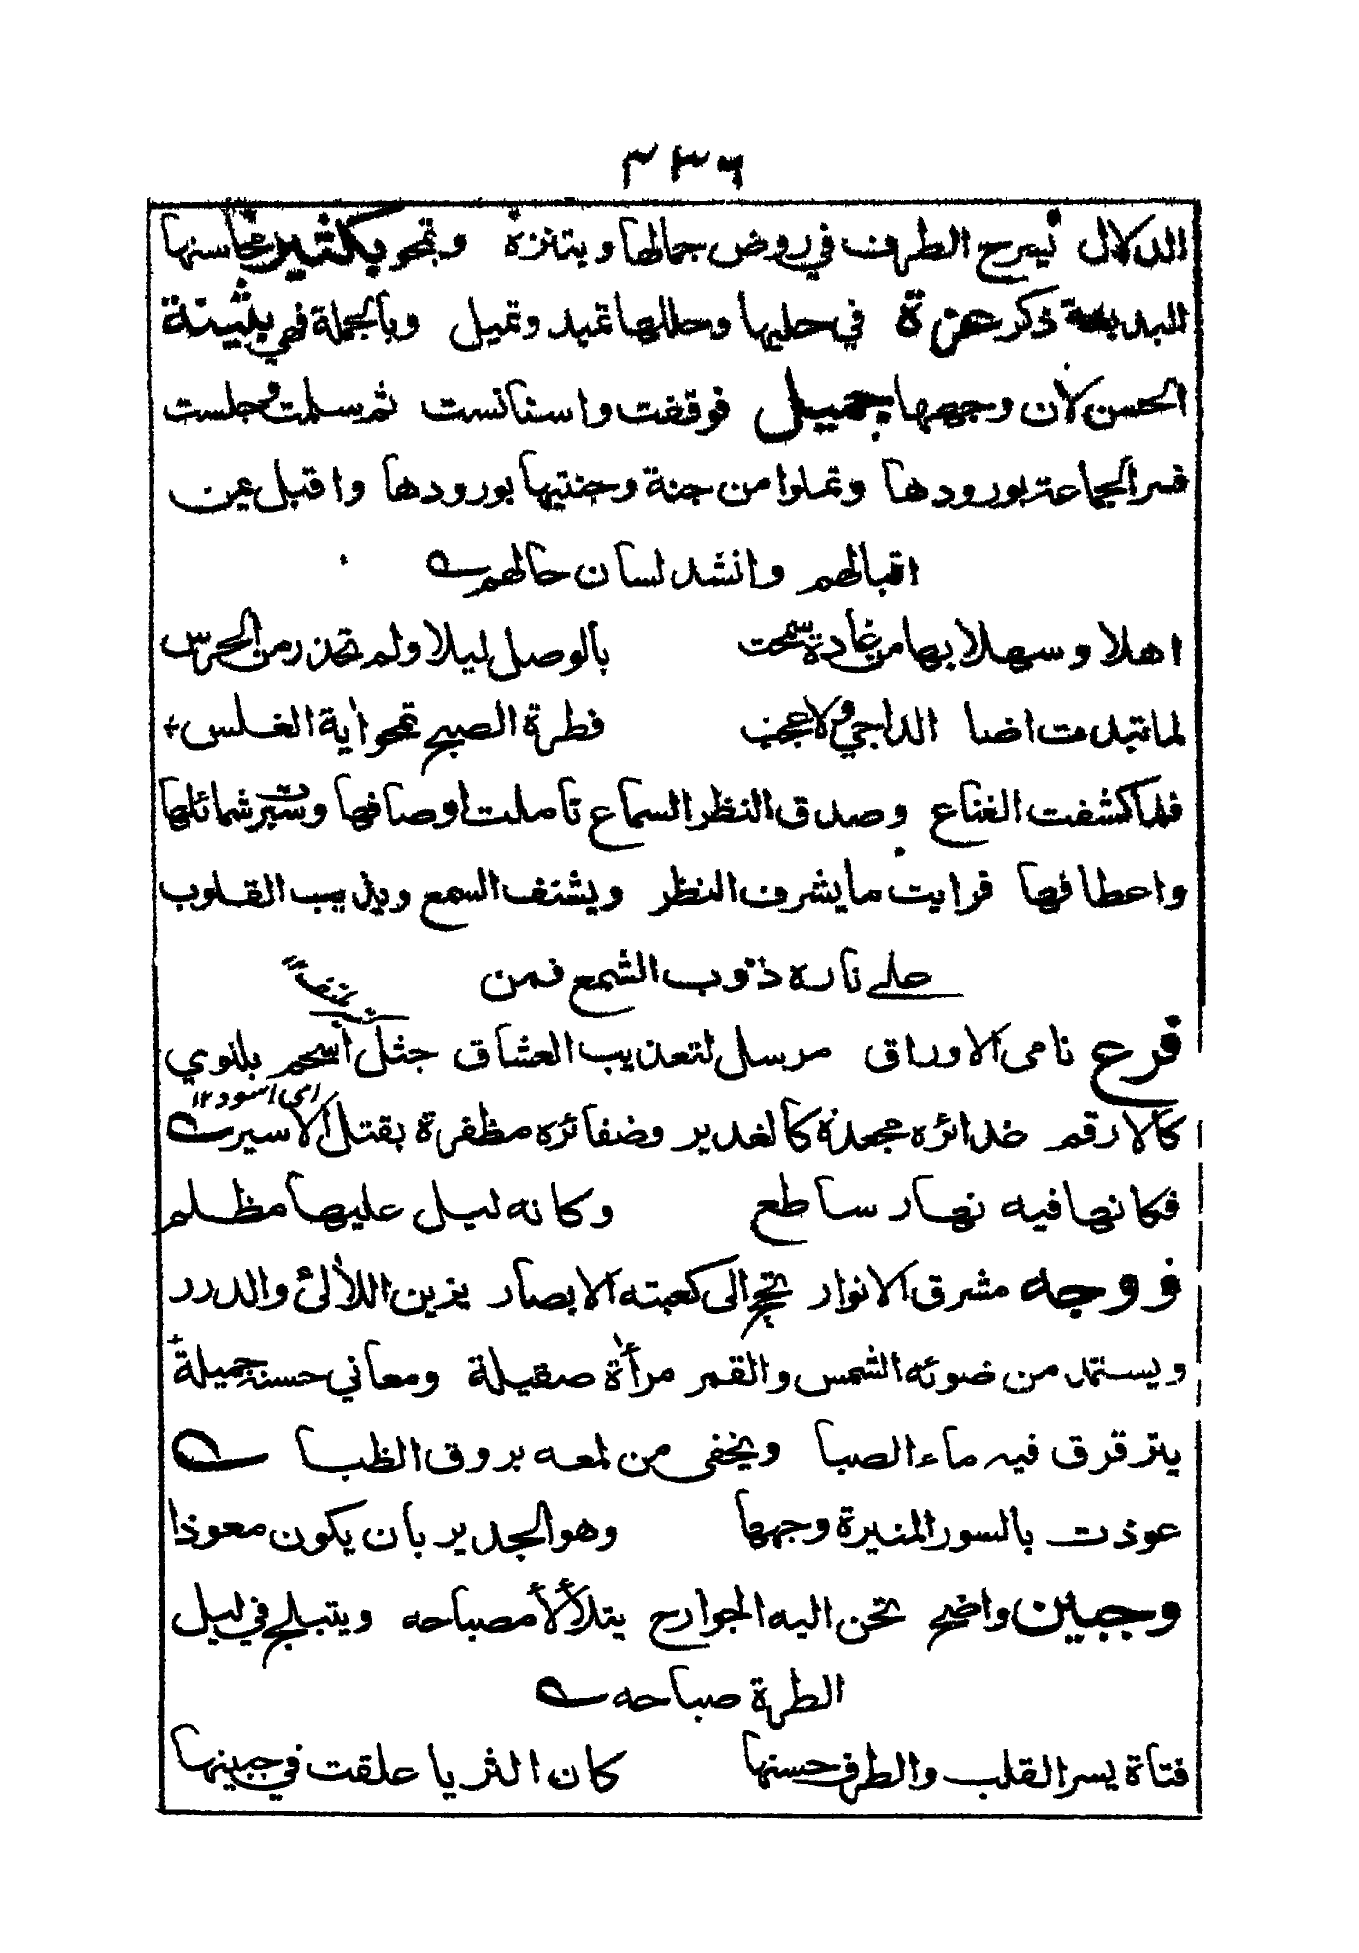 ٣٣٦
الدلال يسرح الطرف في روض جمالها ويتنزه وتمحو بكثير محاسنها
البديعة ذكر عزة في حليها وحللها تميد وتميل وبالجملة فهي بثينة
الحسن لان وجهها جميل فوقفت واستانست ثم سلمت وجلست
فسر الجماعة بورودها وتملوا من جنة وجنتيها بورودها واقبل عن
اقبالهم وانشد لسان حالهم
اهلا وسهلا بها من غادة سمحت بالوصل ليلا ولم تحذر من الحرس
لما تبدت اضا الداجي ولا عجب فطرة الصبح تمحو اية الغلس
فلما كشفت القناع وصدق النظر السماع تاملت اوصافها وسبرت شمائلها
واعطافها فرايت ما يشرف النظر ويشنف السمع ويذيب القلوب
على ناره ذوب الشمع فمن
فرع نامى الاوراق مرسل لتعذيب العشاق جثل اسحم يلتوي
اى اسود ١٢
كالارقم خدائره مجعدة كالغدير وضفائره مظفرة بقتل الاسير
فكانها فيه نهار ساطع وكانه ليل عليها مظلم
ووجه مشرق الانوار تحج الى كعبته الابصار يزين اللآلئ والدرر
ويستمد من ضوئه الشمس والقمر مرأة صقيلة ومعاني حسنه جميلة
يترقرق فيه ماء الصبا ويخفى من لمعه بروق الظبا
عوذت بالسور المنيرة وجهها وهو الجدير بان يكون معوذا
وجبين واضح تحن اليه الجوارح يتلألأ مصباحه ويتبلج في ليل
الطرة صباحه
فتاة يسر القلب والطرف حسنها كان الثريا علقت في جبينها